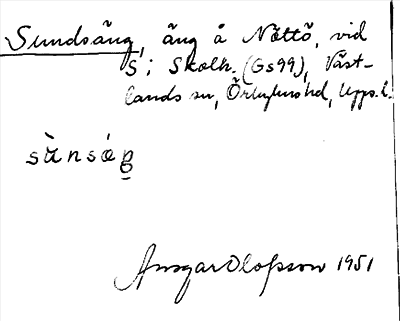 Sundsäng, äng å Nöttö, vid
S; Skolh. (Gs99), Väst-
lands sn, Örbyhus hd, Upps. l.
sùnsæ̀ŋ
Ansgar Olofsson 1951